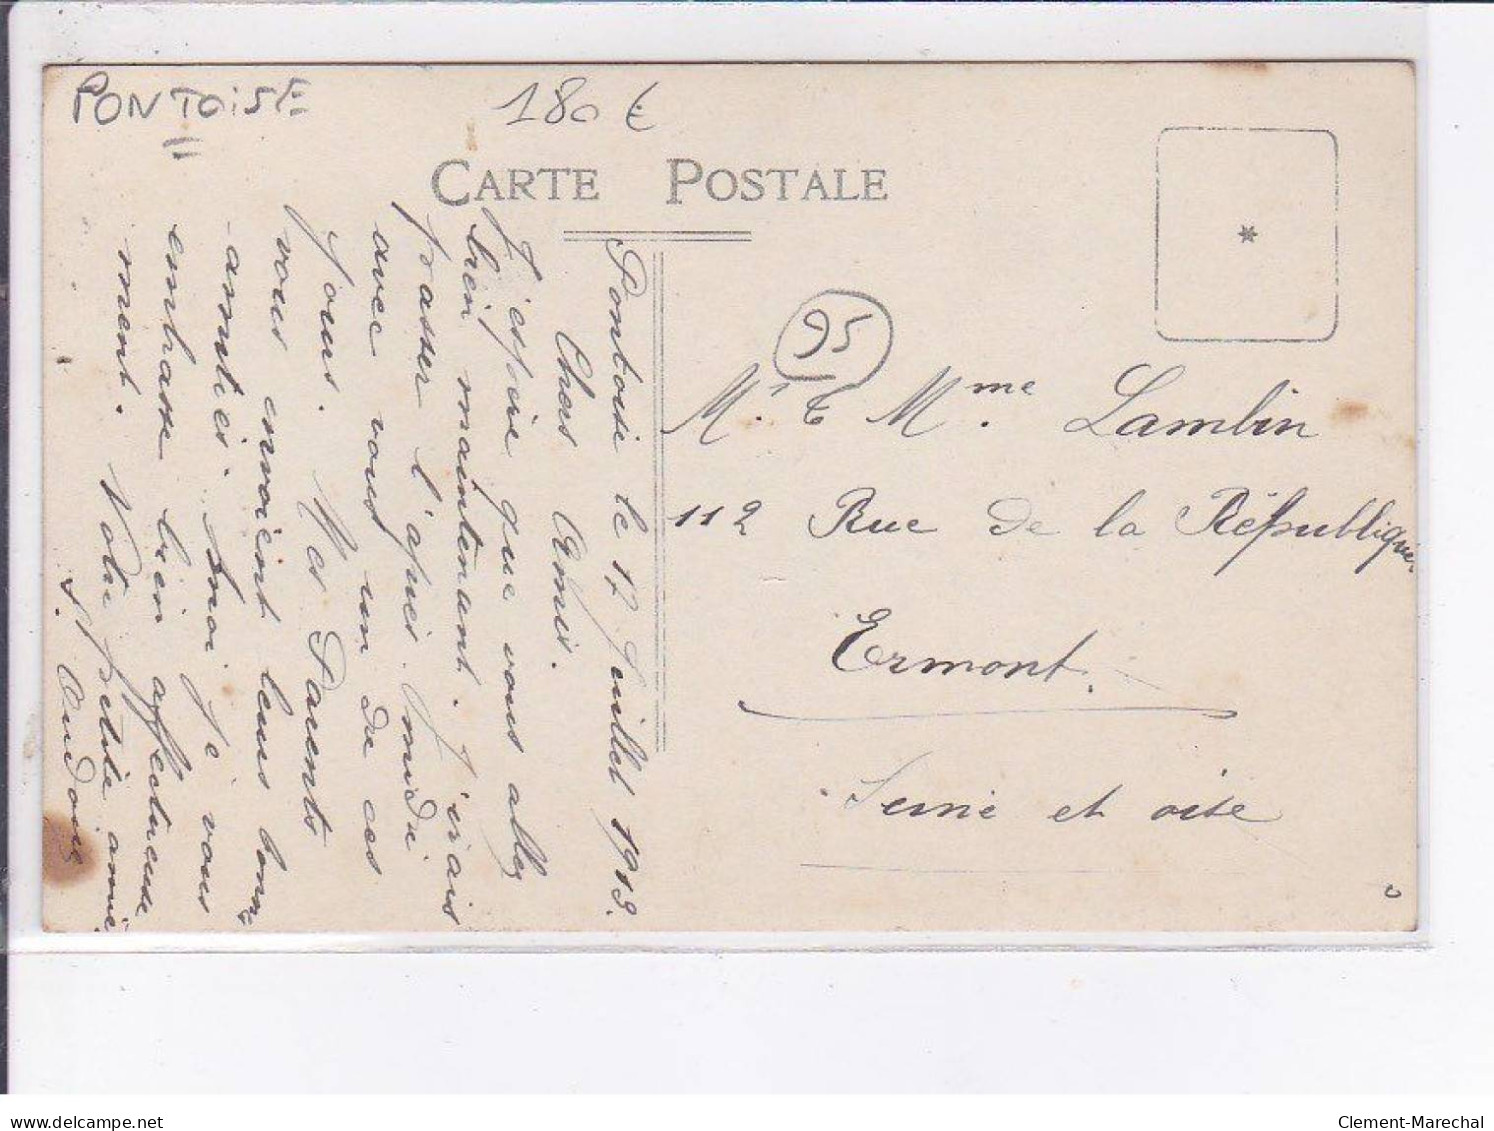 PONTOISE
180 €
CARTE POSTALE
95
Pontoise le 17 Juillet 1913.
Chers Amis.
J'espère que vous allez
bien maintenant. J'irais
passer l'après-midi
avec vous un de ces
jours. Mes Parents
vous envoient leurs bonnes
amitiés. Moi je vous
embrasse bien affectueuse
ment. Votre petite amie
S. Audoing
Mr & Mme Lambin
112 Rue de la République.
Ermont.
Seine et oise
delcampe.net
Clement-Marechal